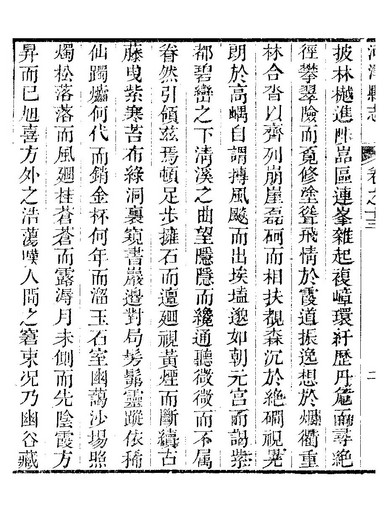 河津縣志 卷之十三 二
披林樾進陟崑區連峯雜起複嶂環紆歷丹危而尋絶
徑攀翠險而覓修塗聳飛情於霞道振逸想於烟衢重
林合沓以齊列崩崖磊砢而相扶覗森沉於絶磵視晃
朗於高嵎自謂摶風飈而出埃壒邈如朝元宫而謁紫
都碧巒之下清溪之曲望隱隱而纔通聽微微而不属
眷然引領兹焉頓足步擁石而邅廻視黄煙而斷續古
藤曳紫寒苔布緑洞裏窺書巖邊對局髣髴靈蹤依稀
仙躅爐何代而銷金杯何年而溜玉石室幽藹沙塲照
燭松落落而風廻桂蒼蒼而露溽月未側而先陰霞方
昇而已旭喜方外之浩蕩嘆人間之窘束况乃幽谷藏